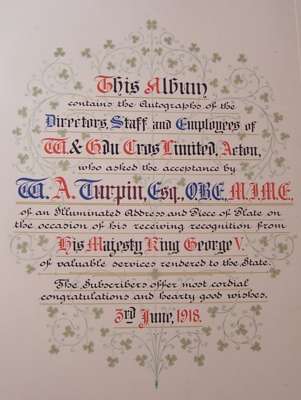 This Album
contains the Autographs of the
Directors, Staff and Employees of
W. & G. du Cros Limited, Acton,
who asked the acceptance by
W. A. Turpin, Esq., O.B.E., M.I.M.E.,
of an Illuminated Address and Piece of Plate on
the occasion of his receiving recognition from
His Majesty King George V.
of valuable services rendered to the State.
The Subscribers offer most cordial
congratulations and hearty good wishes.
3rd June, 1918.